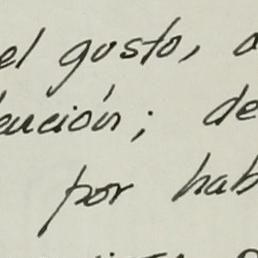 el gusto,
ención; de
por hab